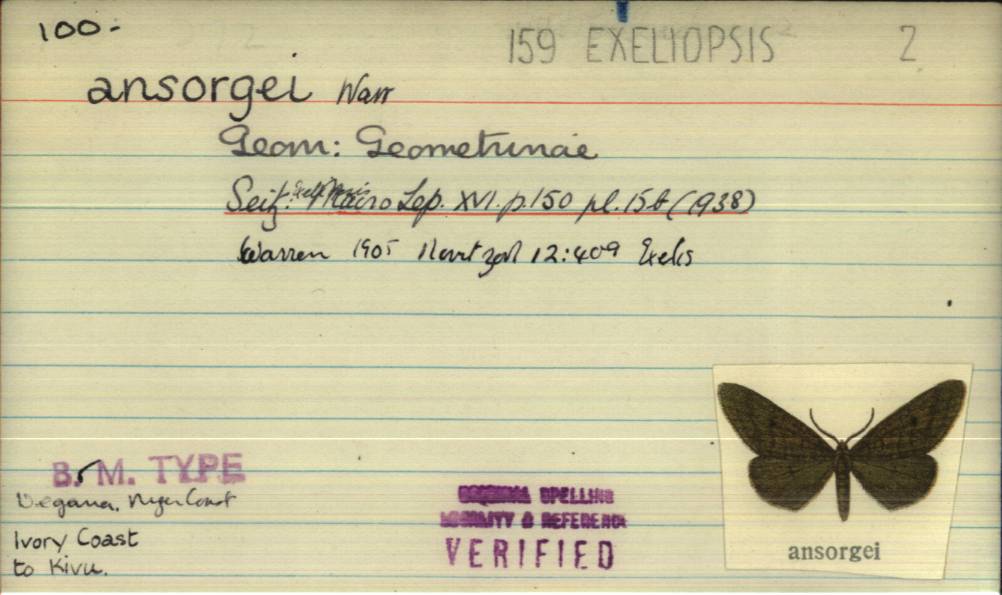 100-
159 EXELIOPSIS 2
ansorgei Warr
Geom: Geometrinae
Seitz. Macro Lep. XVI. p.150 pl.15b (1938)
Warren 1905 Novit zool 12:409 Exelis
B. M. TYPE
Niger Coast
Ivory Coast
to Kivu.
SPELLING
LOCALITY & REFERENCE
VERIFIED
ansorgei